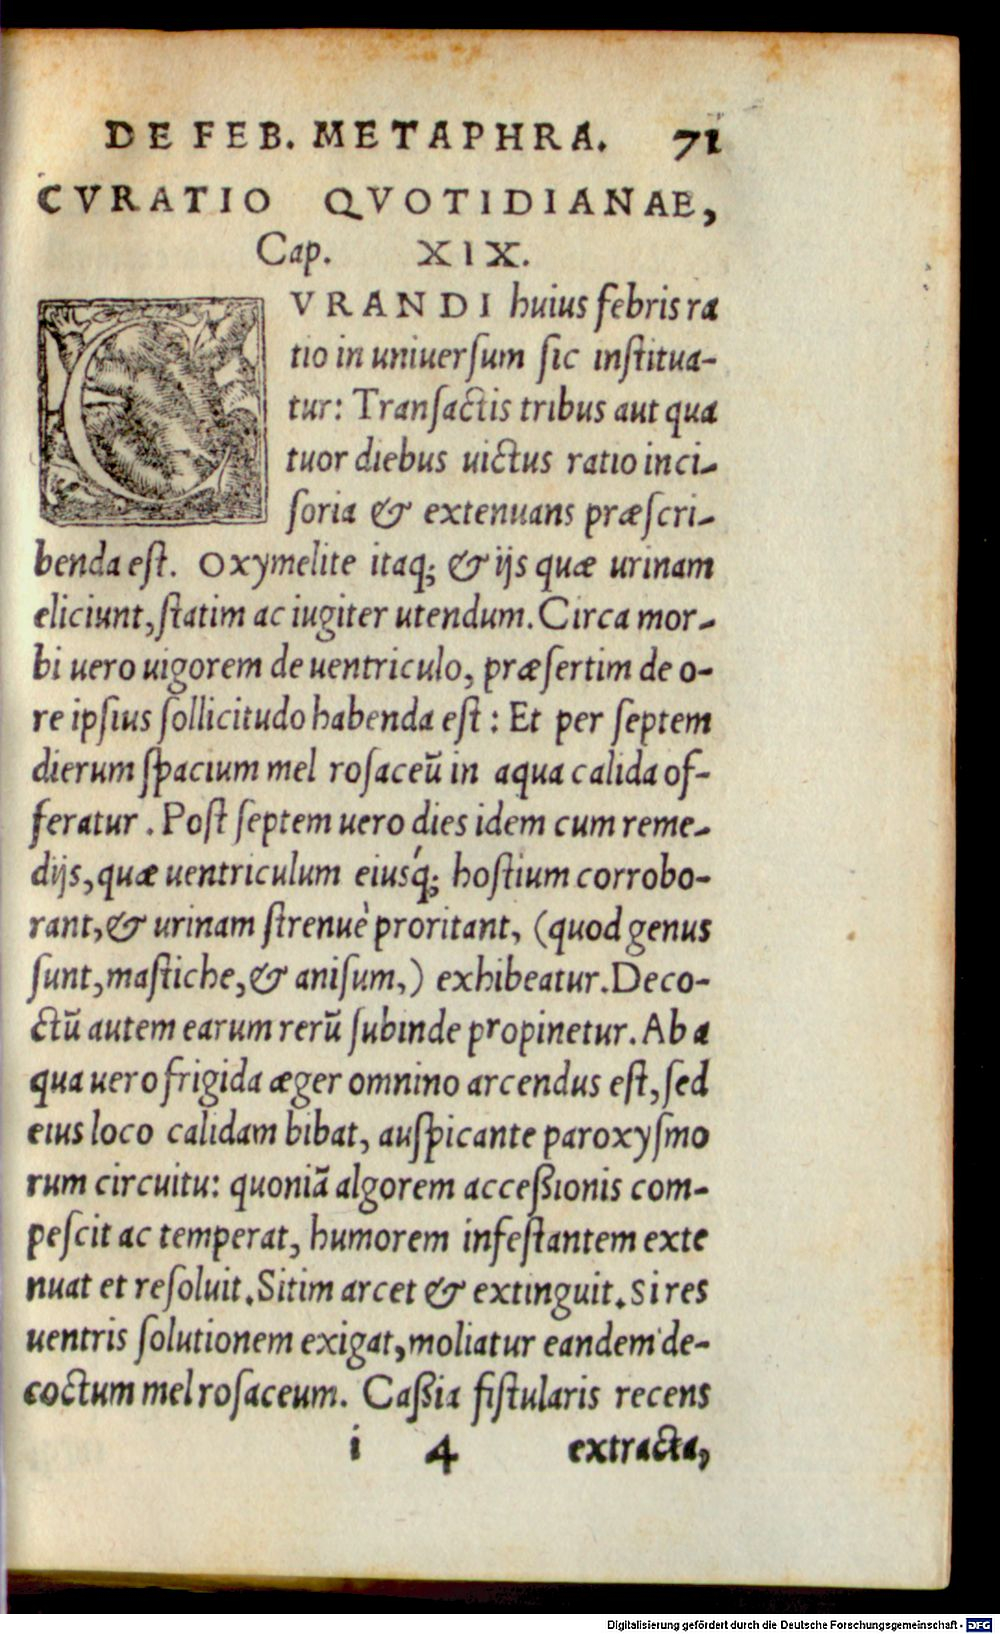 DE FEB. METAPHRA. 71
CVRATIO QVOTIDIANAE,
Cap. XIX.
CVRANDI huius febris ra
tio in uniuersum sic institua-
tur: Transactis tribus aut qua
tuor diebus uictus ratio inci-
soria & extenuans præscri-
benda est. Oxymelite itaq; & ijs quæ urinam
eliciunt, statim ac iugiter utendum. Circa mor-
bi uero uigorem de uentriculo, præsertim de o-
re ipsius sollicitudo habenda est: Et per septem
dierum spacium mel rosaceũ in aqua calida of-
feratur. Post septem uero dies idem cum reme-
dijs, quæ uentriculum eiusq́; hostium corrobo-
rant, & urinam strenuè proritant, (quod genus
sunt, mastiche, & anisum,) exhibeatur. Deco-
ctũ autem earum rerũ subinde propinetur. Ab a
qua uero frigida æger omnino arcendus est, sed
eius loco calidam bibat, auspicante paroxysmo
rum circuitu: quoniã algorem acceßionis com-
pescit ac temperat, humorem infestantem exte
nuat et resoluit. Sitim arcet & extinguit. Si res
uentris solutionem exigat, moliatur eandem de-
coctum mel rosaceum. Caßia fistularis recens
i 4 extracta,
Digitalisierung gefördert durch die Deutsche Forschungsgemeinschaft - DFG